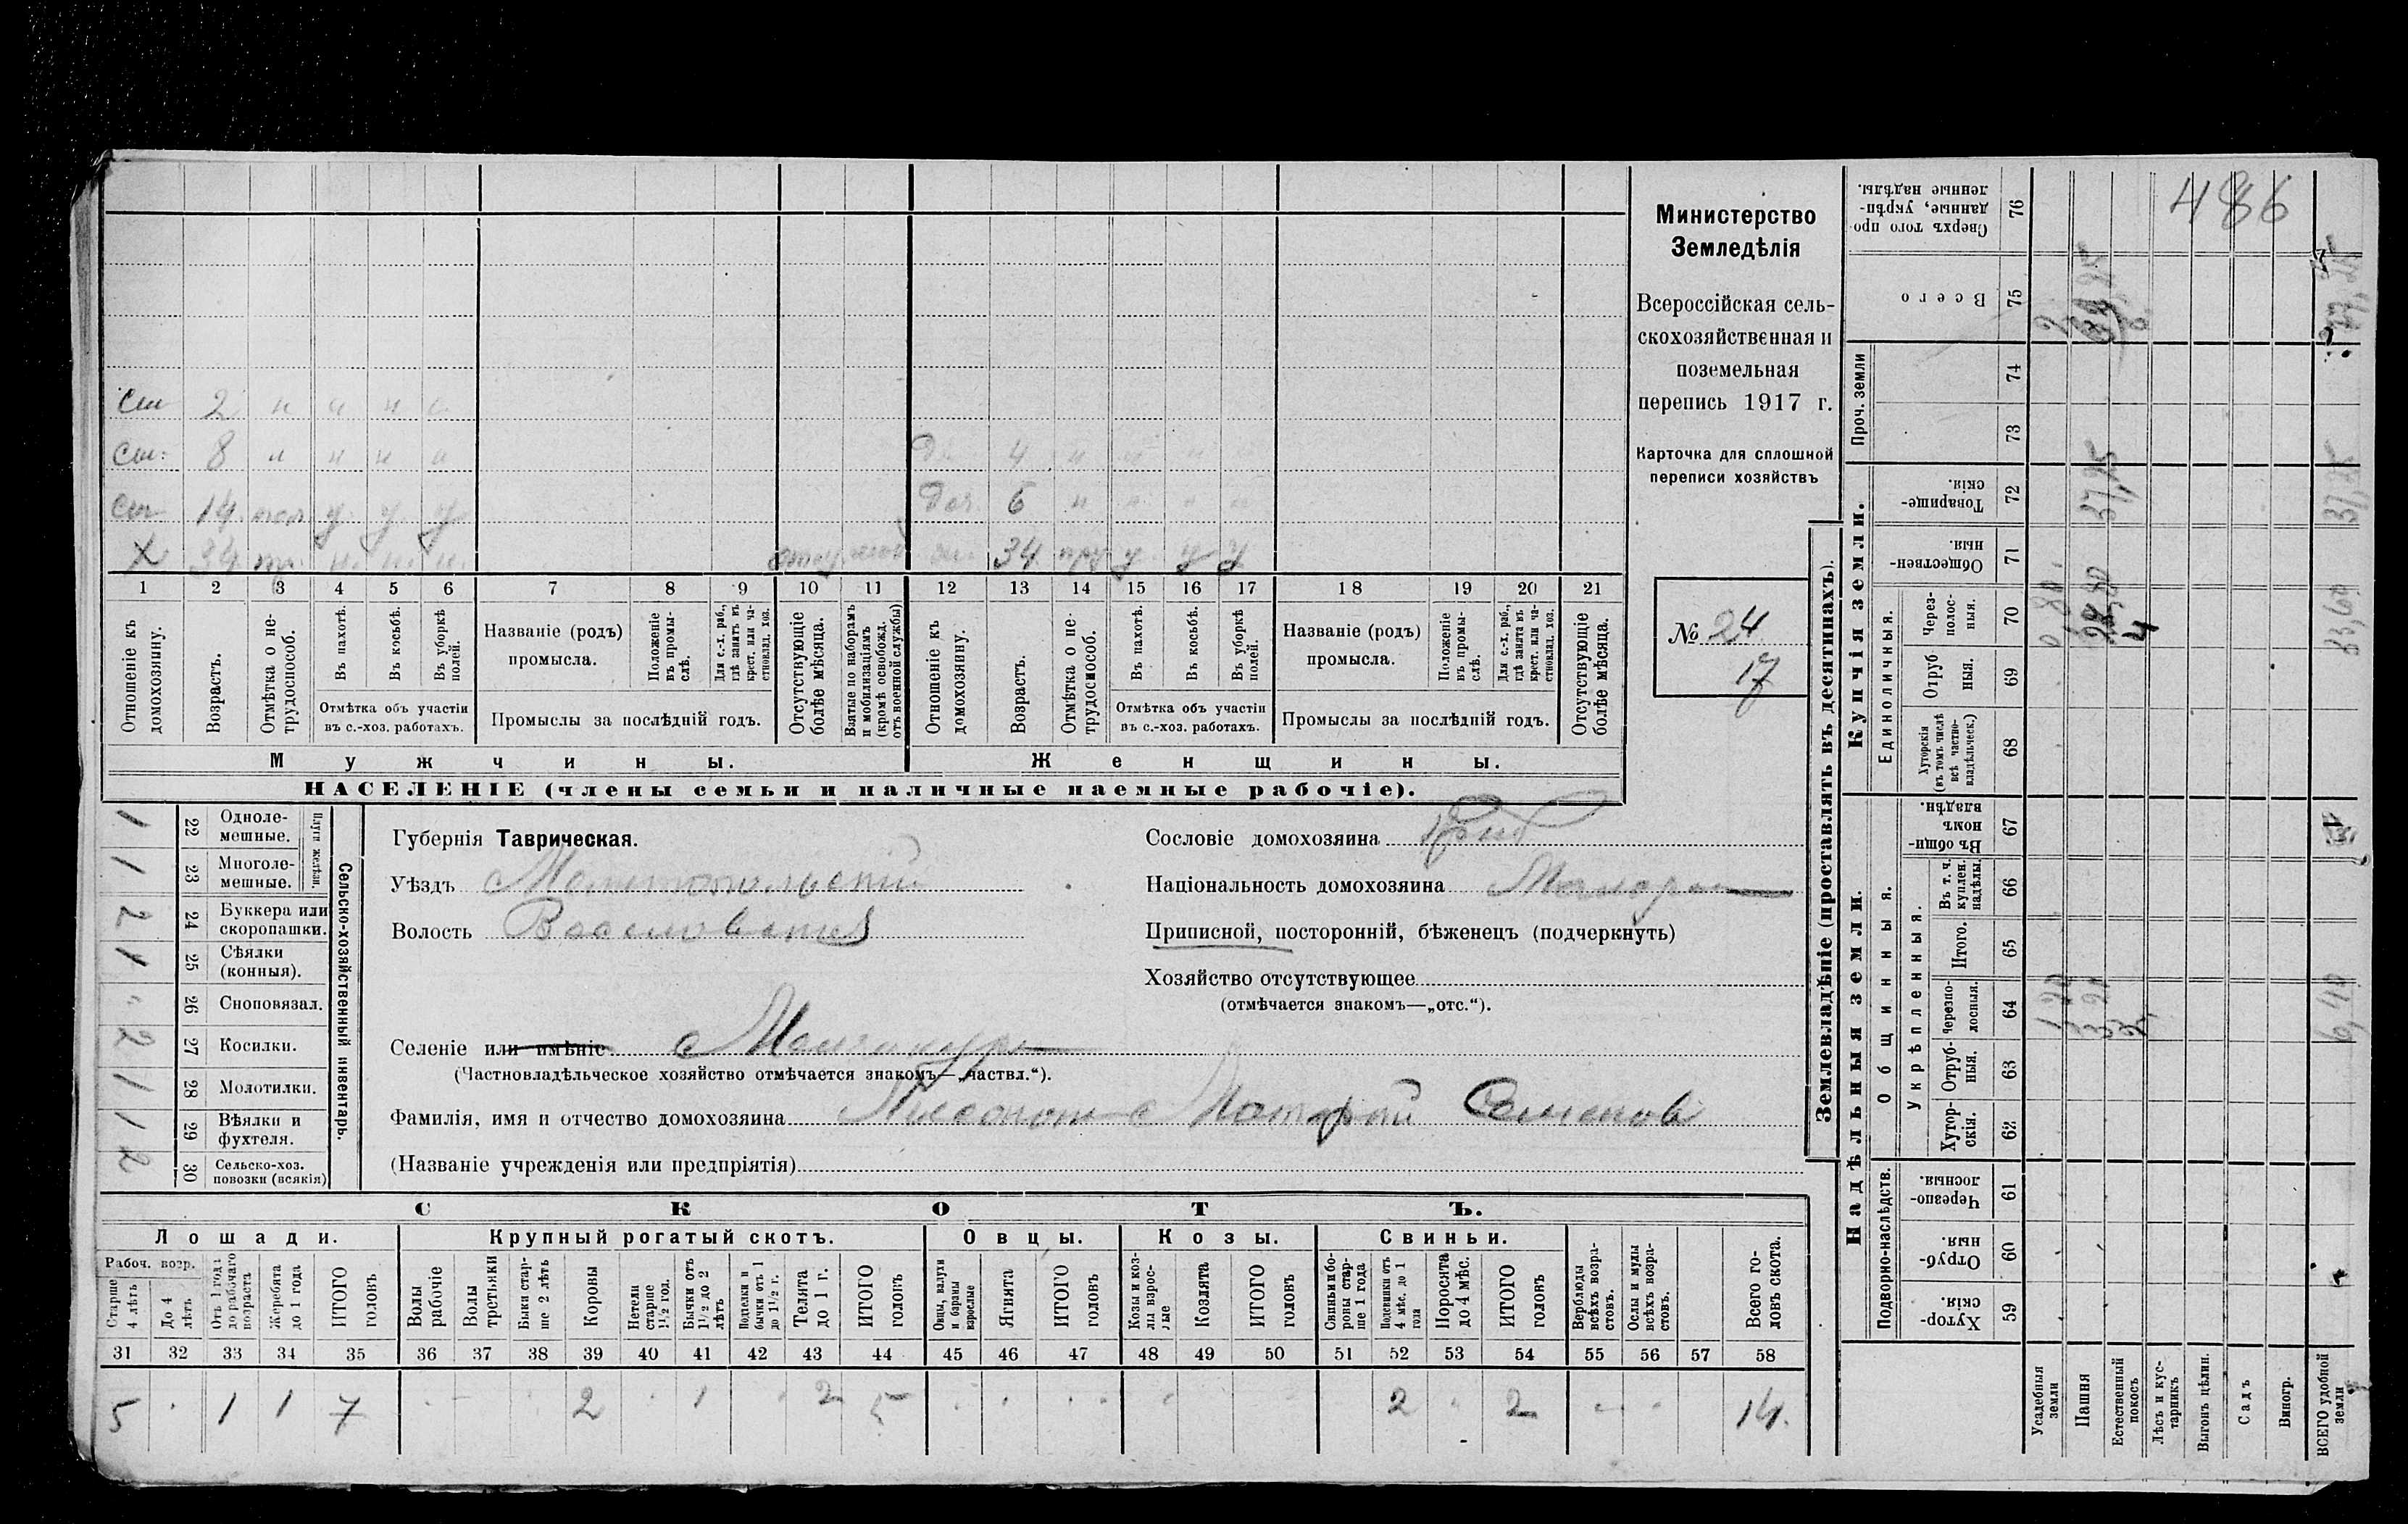 486
Министерство
Земледѣлія
Всероссійская сель-
скохозяйственная и
поземельная
перепись 1917 г.
Карточка для сплошной
переписи хозяйствъ
№ 24
17
сын 2 н н н н
сын 8 н н н н
4 н н н н
сын 14 пол у у у
Доч. 6 н н н н
Х 34 н. н. н.
34 у у у
1 2 3 4 5 6 7 8 9 10 11 12 13 14 15 16 17 18 19 20 21
Отношеніе къ домохозяину.
Возрастъ.
Отмѣтка о не-трудоспособ.
Въ пахотѣ.
Въ косьбѣ.
Въ уборкѣ полей.
Отмѣтка объ участіи въ с.-хоз. работахъ.
Названіе (родъ) промысла.
Положеніе въ промы-слѣ.
Для с.-х. раб., гдѣ занятъ въ крест. или ча-стновлад. хоз.
Промыслы за послѣдній годъ.
Отсутствующіе болѣе мѣсяца.
Взятые по наборамъ и мобилизаціямъ (кромѣ освобожд. отъ военной службы)
Отношеніе къ домохозяину.
Возрастъ.
Отмѣтка о не-трудоспособ.
Въ пахотѣ.
Въ косьбѣ.
Въ уборкѣ полей.
Отмѣтка объ участіи въ с.-хоз. работахъ.
Названіе (родъ) промысла.
Положеніе въ промы-слѣ.
Для с.-х. раб., гдѣ занята въ крест. или ча-стновлад. хоз.
Промыслы за послѣдній годъ.
Отсутствующіе болѣе мѣсяца.
Мужчины.
Женщины.
НАСЕЛЕНІЕ (члены семьи и наличные наемные рабочіе).
Сельско-хозяйственный инвентарь.
Плуги желѣзн.
1 22 Одноле-мешные.
1 23 Многоле-мешные.
2 24 Буккера или скоропашки.
1 25 Сѣялки (конныя).
" 26 Сноповязал.
2 27 Косилки.
1 28 Молотилки.
1 29 Вѣялки и фухтеля.
2 30 Сельско-хоз. повозки (всякія)
Губернія Таврическая.
Уѣздъ Мелитопольскій
Волость
Сословіе домохозяина
Національность домохозяина
Приписной, посторонній, бѣженецъ (подчеркнуть)
Хозяйство отсутствующее
(отмѣчается знакомъ—„отс.“).
Селеніе или имѣніе
(Частновладѣльческое хозяйство отмѣчается знакомъ—„частвл.“).
Фамилія, имя и отчество домохозяина
(Названіе учрежденія или предпріятія)
СКОТЪ.
Лошади. Крупный рогатый скотъ. Овцы. Козы. Свиньи.
Рабоч. возр.
Старше 4 лѣтъ
До 4 лѣтъ
Отъ 1 года до рабочаго возраста
Жеребята до 1 года
ИТОГО головъ
Волы рабочіе
Волы третьяки
Быки стар-ше 2 лѣтъ
Коровы
Нетели старше 1½ год.
Бычки отъ 1½ до 2 лѣтъ
Подтелки и бычки отъ 1 до 1½ г.
Телята до 1 г.
ИТОГО головъ
Овцы, валухи и бараны взрослые
Ягнята
ИТОГО головъ
Козы и коз-лы взрос-лые
Козлята
ИТОГО головъ
Свиньи и бо-ровы стар-ше 1 года
Подсвинки отъ 4 мѣс. до 1 года
Поросята до 4 мѣс.
ИТОГО головъ
Верблюды всѣхъ возра-стовъ.
Ослы и мулы всѣхъ возра-стовъ.
Всего го-ловъ скота.
31 32 33 34 35 36 37 38 39 40 41 42 43 44 45 46 47 48 49 50 51 52 53 54 55 56 57 58
5 1 1 7 2 1 2 5 2 2 14.
Землевладѣніе (проставлять въ десятинахъ).
Надѣльныя земли.
Купчія земли.
Проч. земли
Подворно-наслѣдств.
Общинныя.
Укрѣпленныя.
Единоличныя.
Хутор-скія. 59
Отруб-ныя. 60
Черезпо-лосныя. 61
Хутор-скія. 62
Отруб-ныя. 63
Черезпо-лосныя. 64
Итого. 65
Въ т. ч. куплен. надѣлы. 66
Въ общи-номъ владѣн. 67
Хуторскія (въ томъ числѣ всѣ частно-владѣльческ.) 68
Отруб-ныя. 69
Через-полос-ныя. 70
Обществен-ныя. 71
Товарище-скія. 72
73
74
Всего 75
Сверхъ того про-данные, укрѣп-ленные надѣлы. 76
Усадебныя земли
Пашня
Естественный покосъ
Лѣсъ и кус-тарникъ
Выгонъ цѣлин.
Садъ
Виногр.
ВСЕГО удобной земли